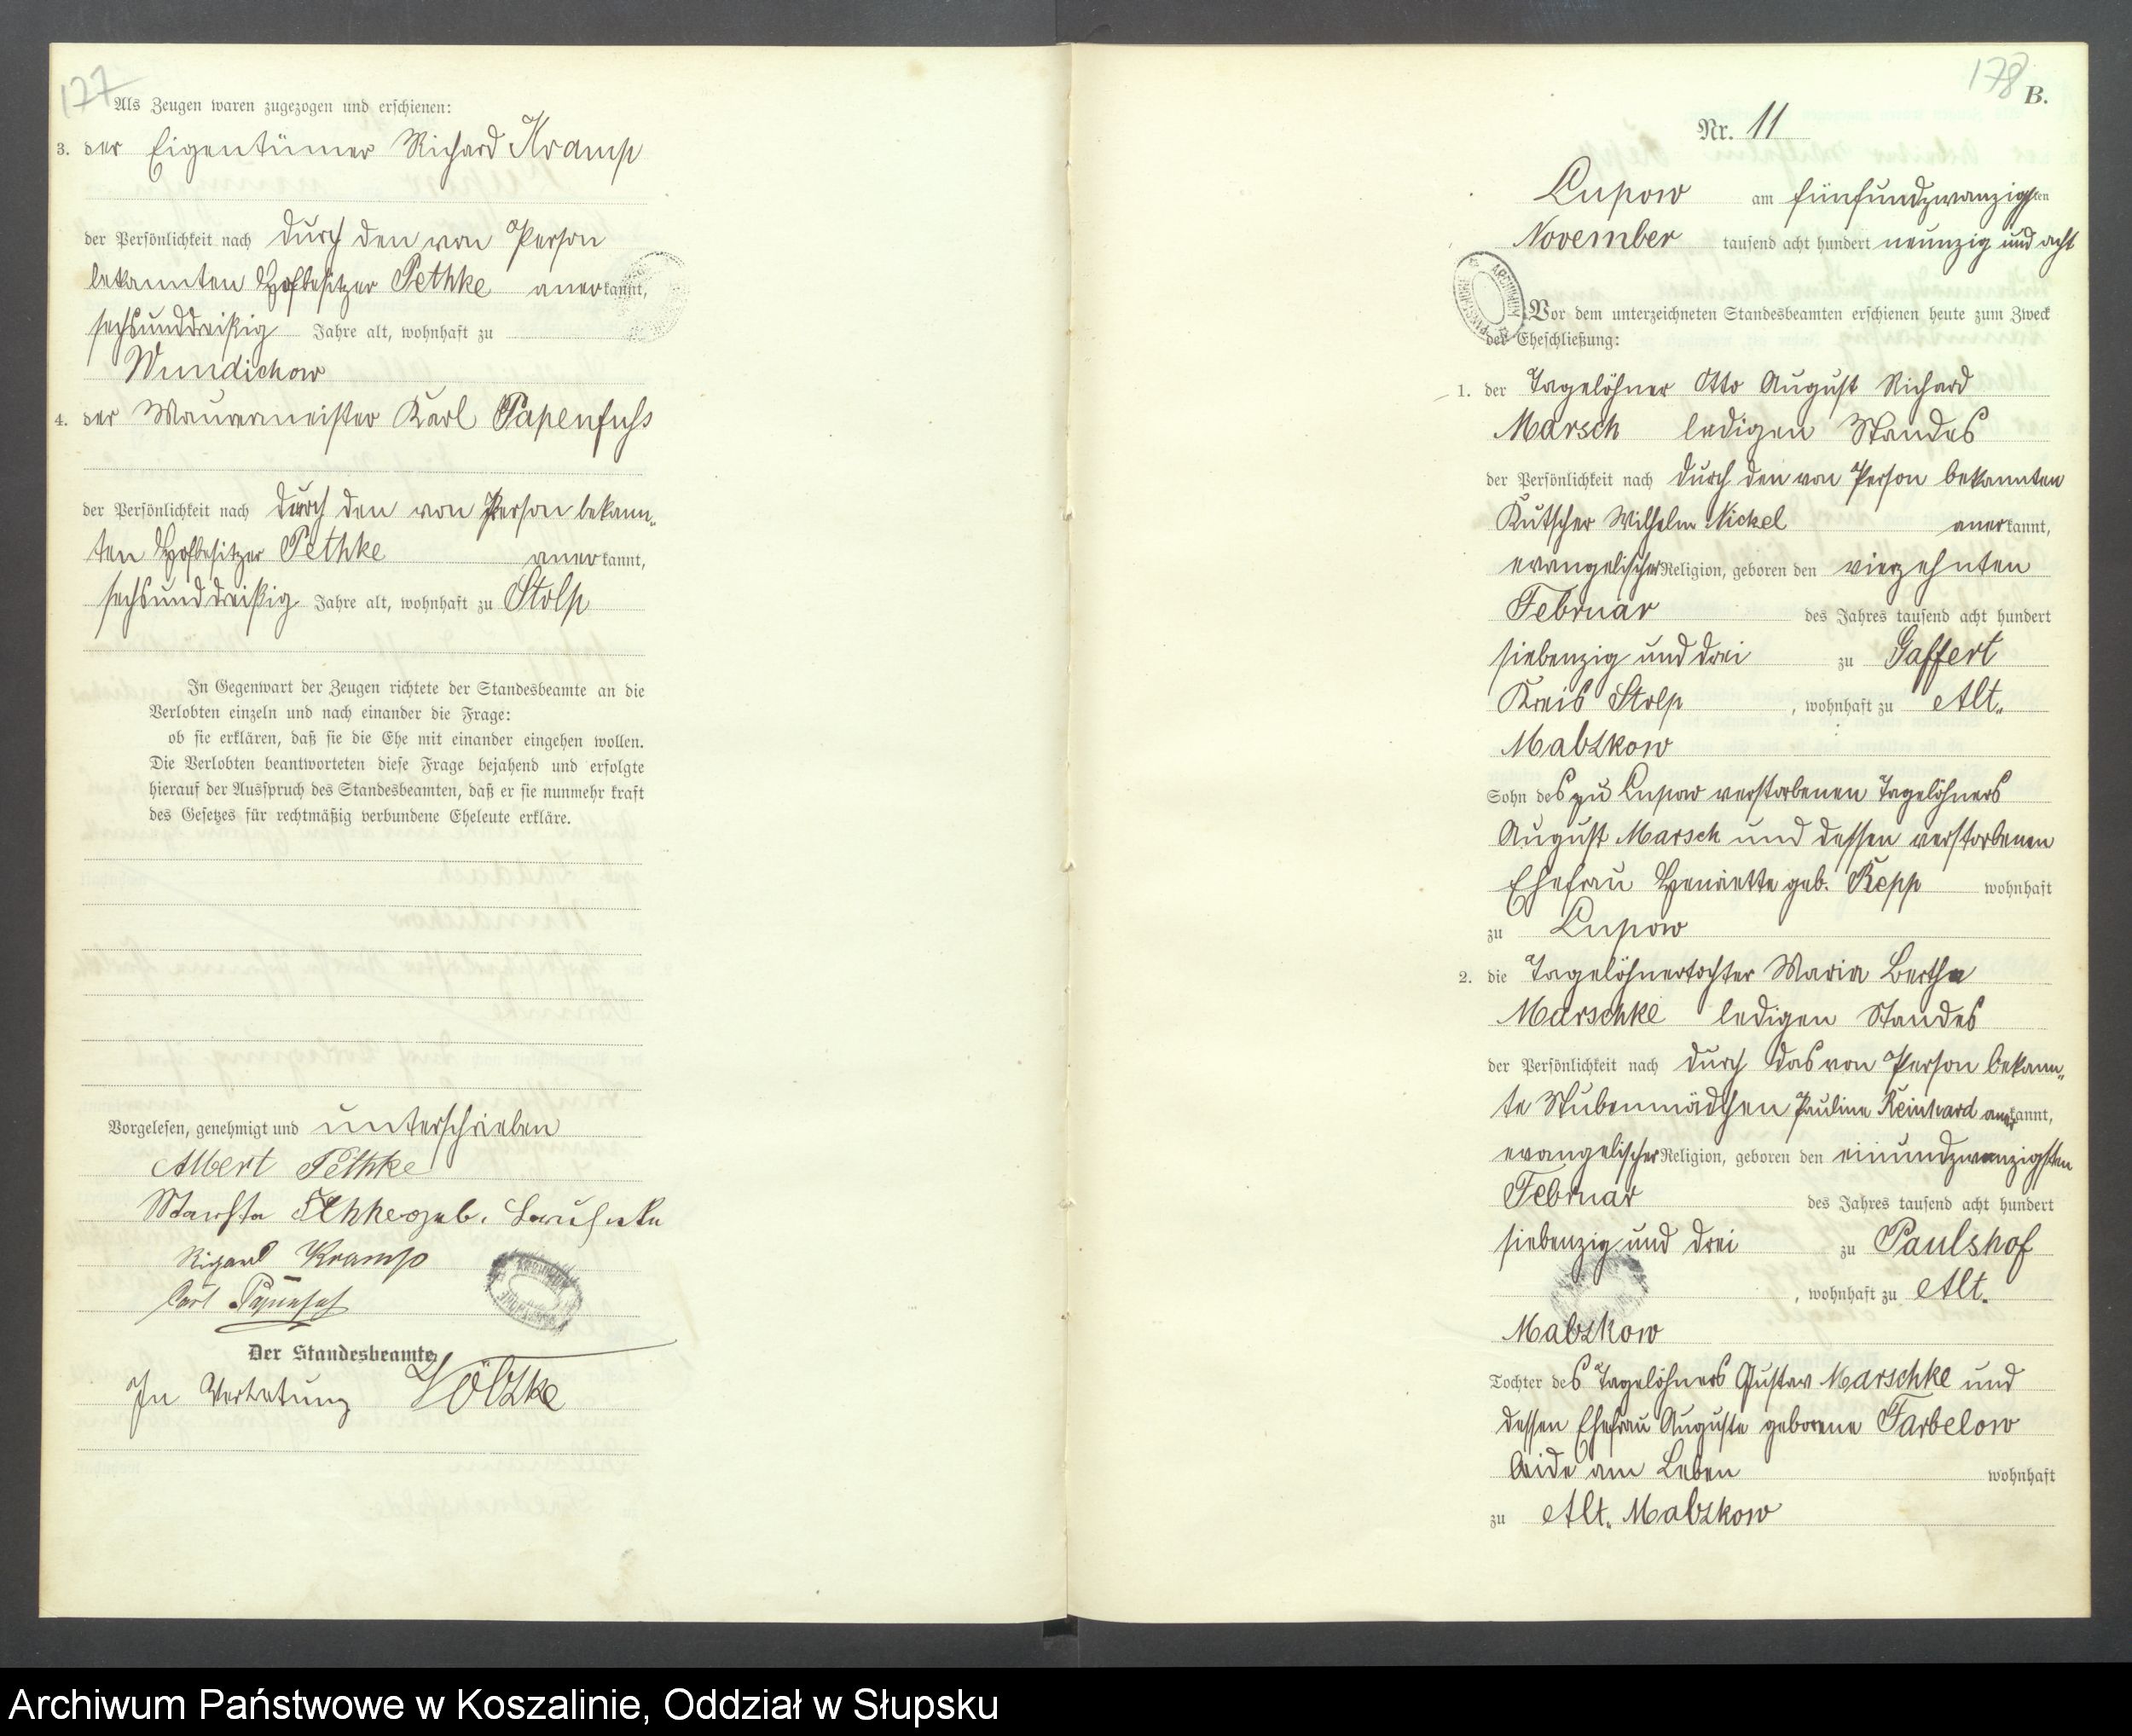 177
Als Zeugen waren zugezogen und erschienen:
3. der Eigentümer Richard Kramp
der Persönlichkeit nach durch den von Person
bekannten Hofbesitzer Pethke anerkannt,
sechsunddreißig Jahre alt, wohnhaft zu
Wundichow
4. der Maurermeister Karl Papenfuss
der Persönlichkeit nach durch den von Person bekann„
ten Hofbesitzer Pethke anerkannt,
sechsunddreißig Jahre alt, wohnhaft zu Stolp
In Gegenwart der Zeugen richtete der Standesbeamte an die
Verlobten einzeln und nach einander die Frage:
ob sie erklären, daß sie die Ehe mit einander eingehen wollen.
Die Verlobten beantworteten diese Frage bejahend und erfolgte
hierauf der Ausspruch des Standesbeamten, daß er sie nunmehr kraft
des Gesetzes für rechtmäßig verbundene Eheleute erkläre.
Vorgelesen, genehmigt und unterschrieben
Albert Pethke
geb.
Richard Kramp
Carl
Der Standesbeamte
In Vertretung
178
B.
Nr. 11
Lupow am fünfundzwanzigsten
November tausend acht hundert neunzig und acht
Vor dem unterzeichneten Standesbeamten erschienen heute zum Zweck
der Eheschließung:
1. der Tagelöhner Otto August Richard
Marsch ledigen Standes
der Persönlichkeit nach durch den von Person bekannten
Kutscher Wilhelm Nickel anerkannt,
evangelischer Religion, geboren den vierzehnten
Februar des Jahres tausend acht hundert
siebenzig und drei zu Gaffert
Kreis Stolp, wohnhaft zu Alt„
Mabzkow
Sohn des zu Lupow verstorbenen Tagelöhners
August Marsch und dessen verstorbenen
Ehefrau Henriette geb. Repp wohnhaft
zu Lupow
2. die Tagelöhnertochter Maria Bertha
Marschke ledigen Standes
der Persönlichkeit nach durch das von Person bekann„
te Stubenmädchen Pauline Reinhard anerkannt,
evangelischer Religion, geboren den einundzwanzigsten
Februar des Jahres tausend acht hundert
siebenzig und drei zu Paulshof
, wohnhaft zu Alt.
Mabzkow
Tochter des Tagelöhners Gustav Marschke und
dessen Ehefrau Auguste geborene Farbelow
beide am Leben wohnhaft
zu Alt. Mabzkow
Archiwum Państwowe w Koszalinie, Oddział w Słupsku